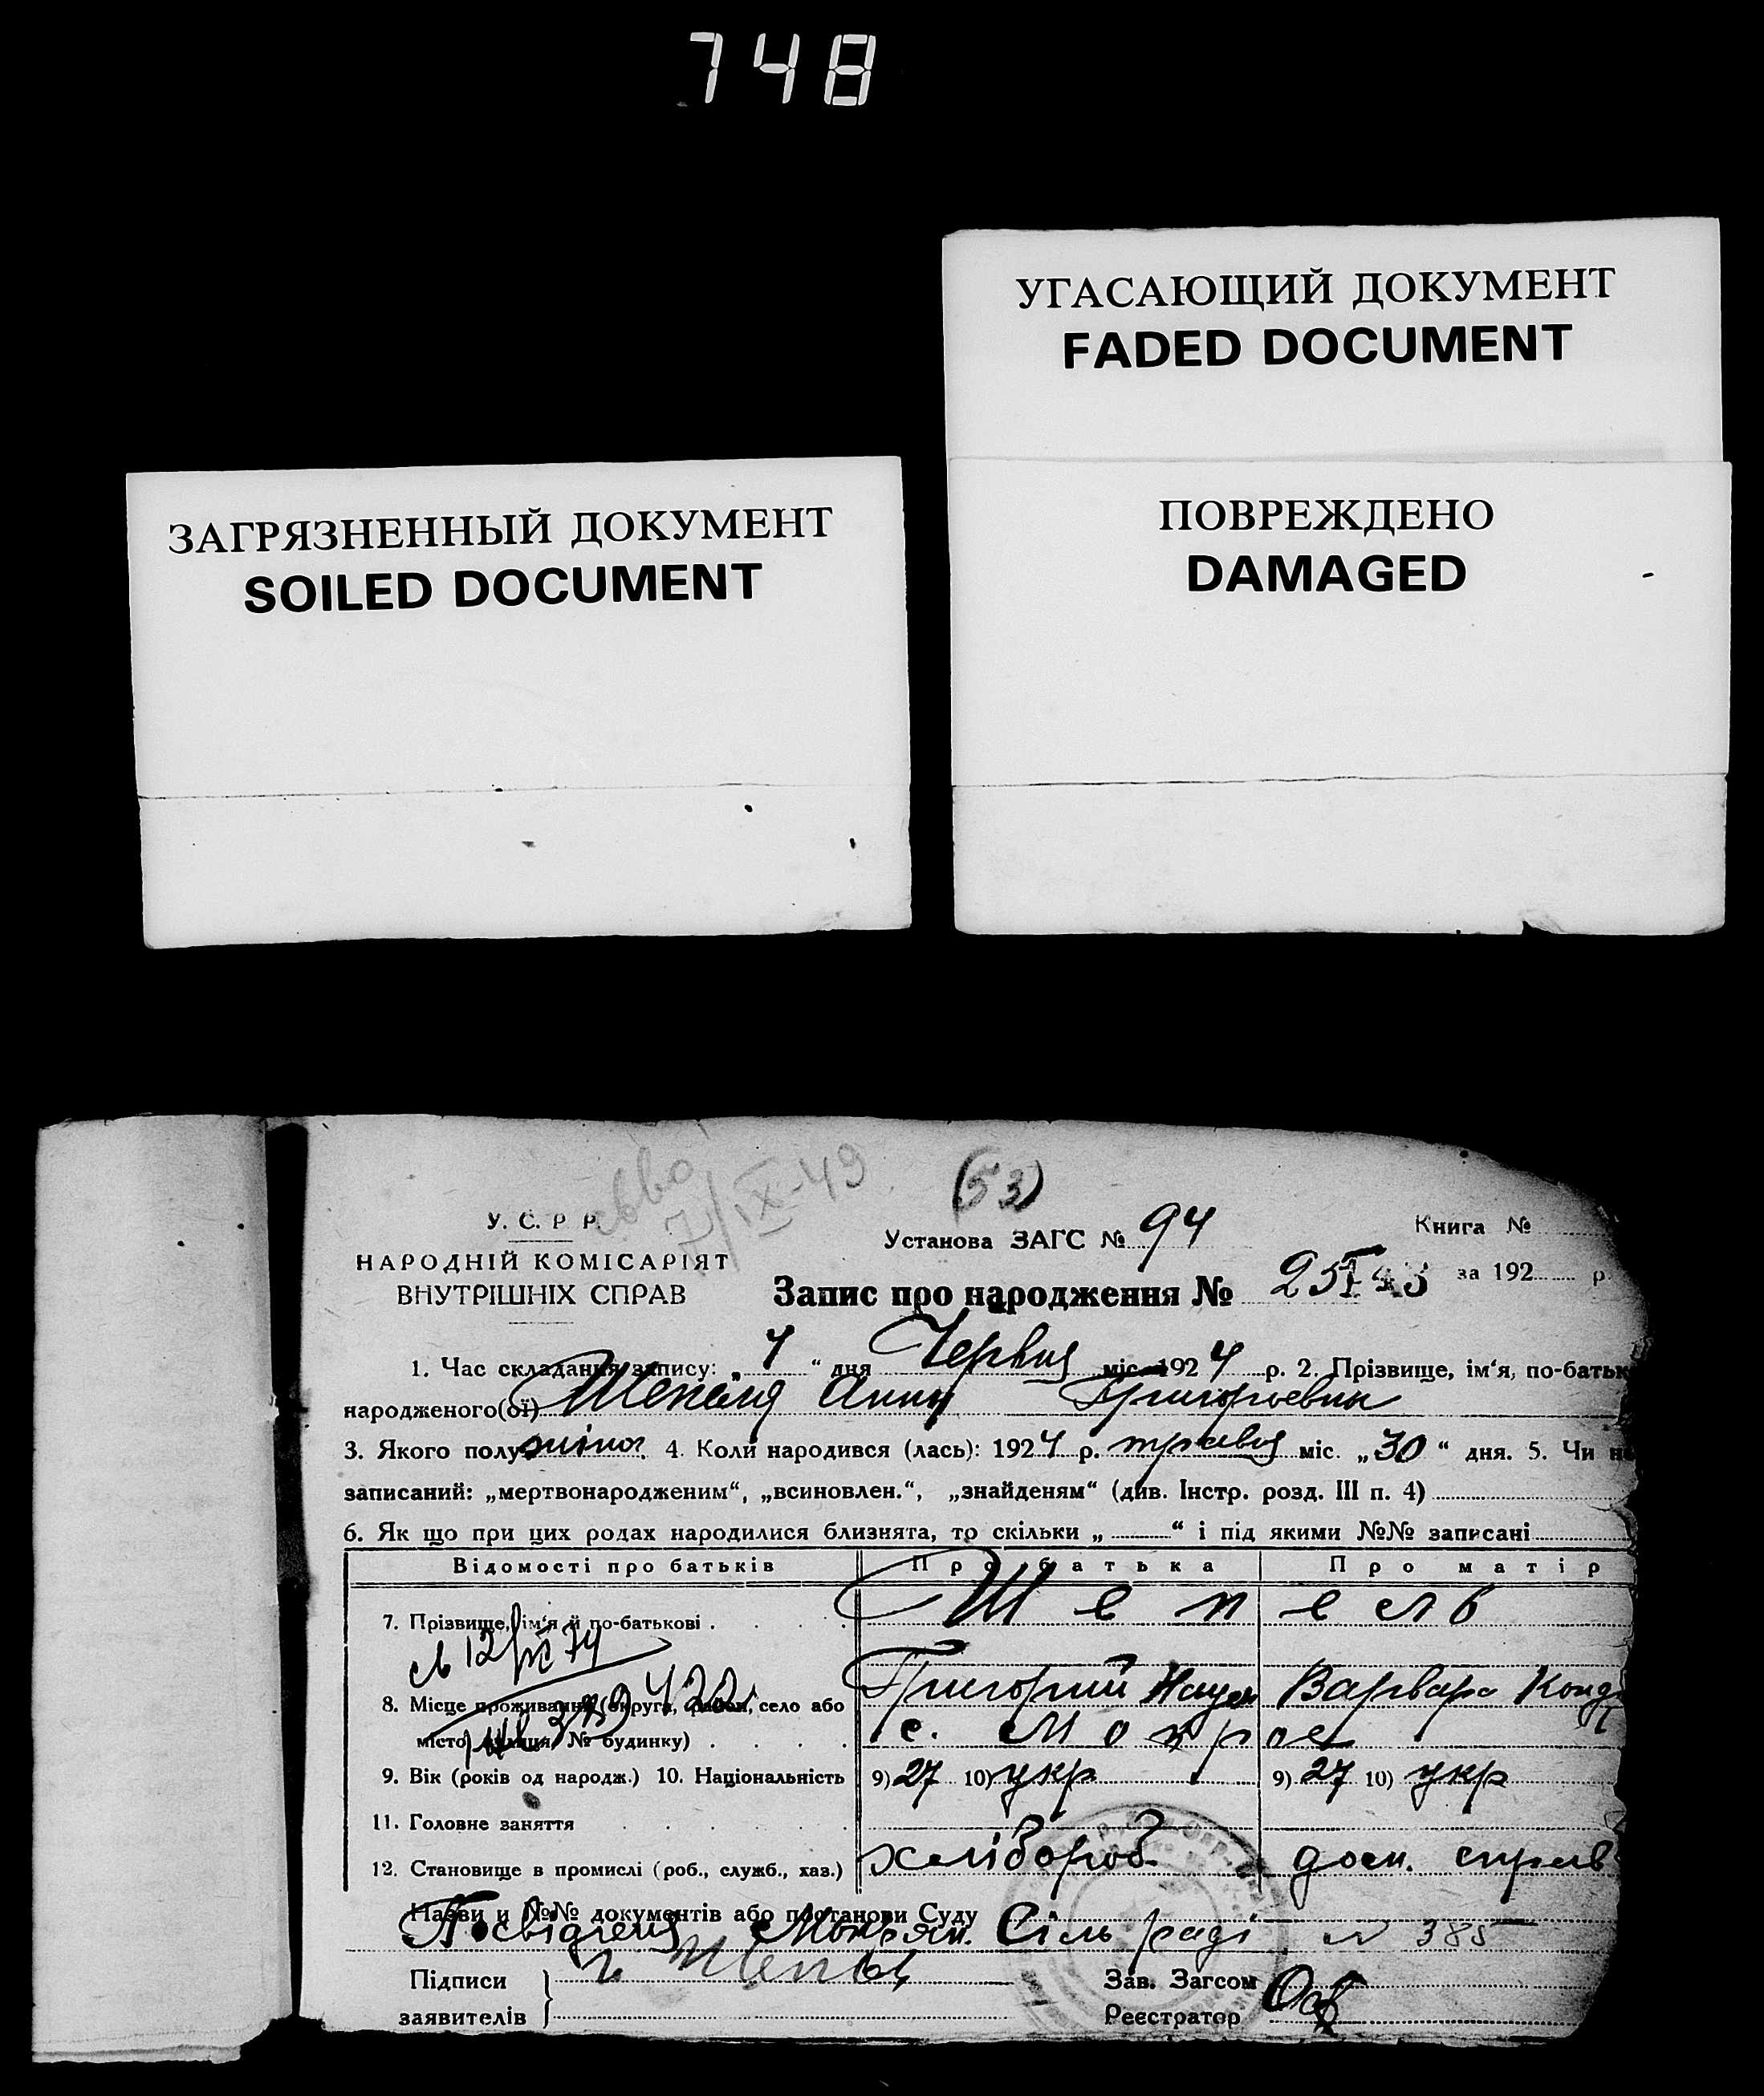 748
УГАСАЮЩИЙ ДОКУМЕНТ
FADED DOCUMENT
ЗАГРЯЗНЕННЫЙ ДОКУМЕНТ
SOILED DOCUMENT
ПОВРЕЖДЕНО
DAMAGED
7/IX-49
(53)
У. С. Р Р.
НАРОДНІЙ КОМІСАРІЯТ
ВНУТРІШНІХ СПРАВ
Установа ЗАГС № 94
Книга №
Запис про народження № за 192 р.
1. Час складання запису: „ 4 “ дня Червня міс. 1924 р. 2. Прізвище, ім‘я, по-батьк
народженого(ої) Шепель Анна Григорьевна
3. Якого полу жіноч. 4. Коли народився (лась): 1924 р. травня міс. „30“ дня. 5. Чи не
записаний: „мертвонародженим“, „всиновлен.“, „знайденям“ (див. Інстр. розд. III п. 4)
6. Як що при цих родах народилися близнята, то скільки „ “ і під якими №№ записані
Відомості про батьків Про батька Про матір
7. Прізвище, ім‘я й по-батькові . Шепель
Григорий Варвара Конд
8. Місце проживання (округа, район, село або
місто, вулиця, № будинку) с. Мокрое
9. Вік (років од народж.) 10. Національність 9) 27 10) укр 9) 27 10) укр
11. Головне заняття
12. Становище в промислі (роб., служб., хаз.) хлібороб дом. справ
Назви и №№ документів або постанови Суду
Посвідчення Мокрян. Сіль раді № 385
Підписи
заявителів
Зав. Загсом
Реєстратор